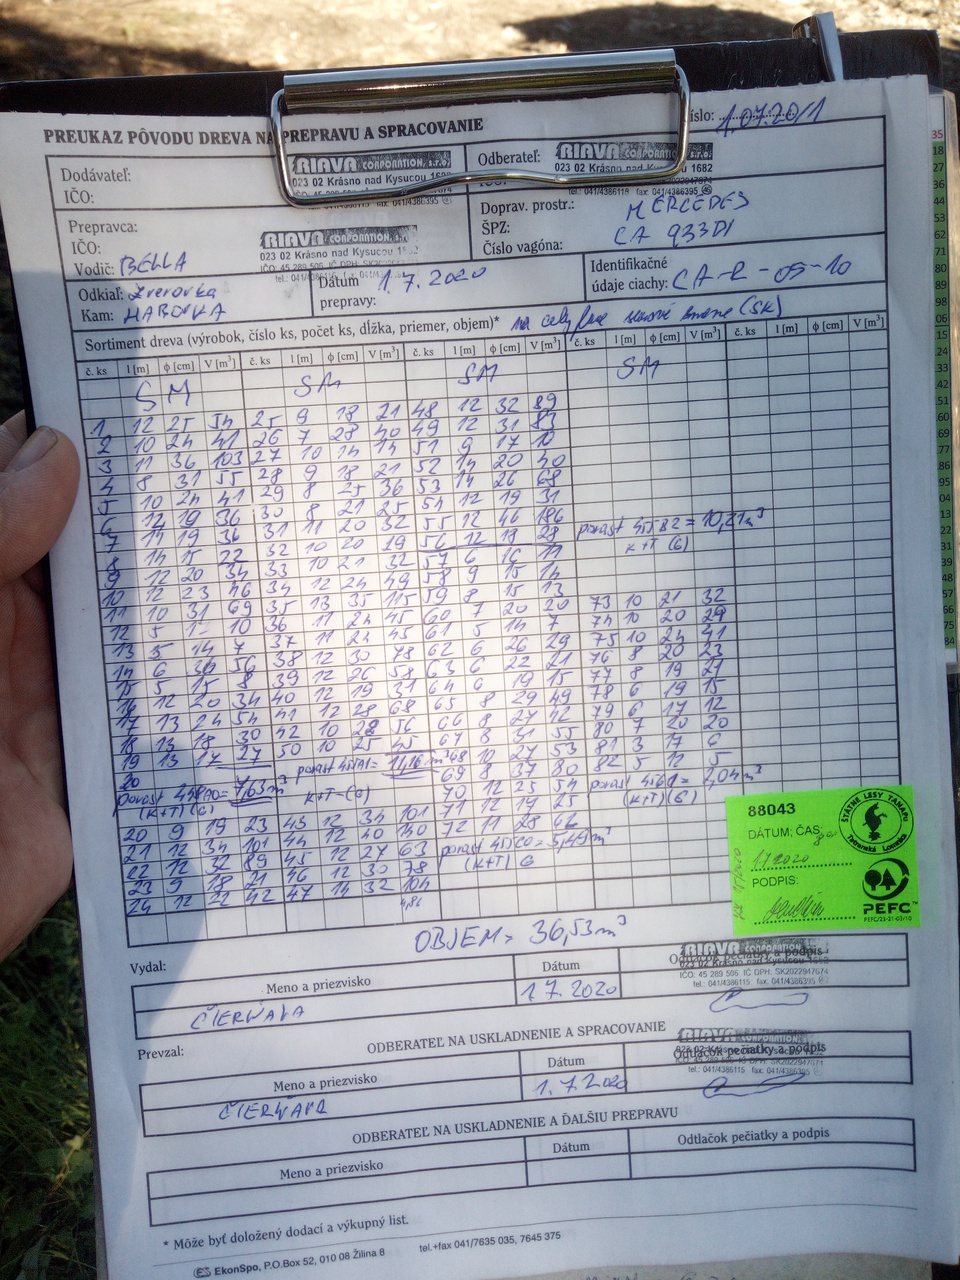 PREUKAZ PÔVODU DREVA NA PREPRAVU A SPRACOVANIE
číslo: 1.07.20/1
Dodávateľ: RIAVA CORPORATION, s.r.o.
023 02 Krásno nad Kysucou 1682
IČO:
Odberateľ: RIAVA CORPORATION, s.r.o.
023 02 Krásno nad Kysucou 1682
tel.: 041/4386115 fax: 041/4386395
Prepravca: RIAVA CORPORATION, s.r.o.
IČO: 023 02 Krásno nad Kysucou 1682
Vodič: BELLA
Doprav. prostr.: MERCEDES
ŠPZ: CA 933DI
Číslo vagóna:
Odkiaľ: Zverovka
Kam: HABOVKA
Dátum prepravy: 1.7.2020
Identifikačné údaje ciachy: CA-R-05-10
Sortiment dreva (výrobok, číslo ks, počet ks, dĺžka, priemer, objem)*
č. ks l [m] ϕ [cm] V [m³] č. ks l [m] ϕ [cm] V [m³] č. ks l [m] ϕ [cm] V [m³] č. ks l [m] ϕ [cm] V [m³] č. ks l [m] ϕ [cm] V [m³]
SM SM SM SM
1 12 25 54 25 9 18 21 48 12 32 89
2 10 24 41 26 7 28 40 49 12 31 83
3 11 36 103 27 10 14 14 51 9 17 10
4 8 31 55 28 9 18 21 52 14 20 40
5 10 24 41 29 8 25 36 53 14 26 68
6 12 19 36 30 8 21 25 54 12 19 31
7 14 19 36 31 11 20 32 55 12 46 186
8 14 15 22 32 10 20 29 56 12 18 28
9 12 20 34 33 10 21 32 57 6 16 11
10 12 23 46 34 12 24 49 58 9 15 14
11 10 31 69 35 13 35 115 59 8 15 13
12 5 10 36 11 24 45 60 7 20 20 73 10 21 32
13 5 14 7 37 11 24 45 61 5 14 7 74 10 20 29
14 6 36 56 38 12 30 78 62 6 26 29 75 10 24 41
15 5 15 8 39 12 26 58 63 6 22 21 76 8 20 23
16 12 20 34 40 12 19 31 64 6 19 15 77 8 19 21
17 13 24 54 41 12 28 68 65 8 29 49 78 6 19 15
18 13 18 30 42 10 28 56 66 8 27 42 79 6 17 12
19 13 17 27 50 10 25 45 67 8 31 55 80 7 20 20
20 68 10 27 53 81 3 17 6
69 8 37 80 82 5 12 5
70 12 25 54
71 12 19 25
20 9 19 23 43 12 34 101 72 11 28 66
21 12 34 101 44 12 40 140
22 12 32 89 45 12 27 63
23 9 18 21 46 12 30 78
24 12 22 42 47 14 32 104
4,86
K+T (6)
K+T-(6)
(K+T) (6)
(K+T) 6
OBJEM = 36,53 m³
88043
DÁTUM; ČAS:
1.7.2020
PODPIS:
ŠTÁTNE LESY TANAPu
Tatranská Lomnica
PEFC™
PEFC/23-21-03/10
Vydal:
Meno a priezvisko Dátum Odtlačok pečiatky a podpis
1.7.2020
RIAVA CORPORATION, s.r.o.
IČO: 45 289 506 IČ DPH: SK2022947674
tel.: 041/4386115 fax: 041/4386395
Prevzal:
ODBERATEĽ NA USKLADNENIE A SPRACOVANIE
Meno a priezvisko Dátum Odtlačok pečiatky a podpis
1.7.2020
ODBERATEĽ NA USKLADNENIE A ĎALŠIU PREPRAVU
Meno a priezvisko Dátum Odtlačok pečiatky a podpis
* Môže byť doložený dodací a výkupný list.
EkonSpo, P.O.Box 52, 010 08 Žilina 8 tel.+fax 041/7635 035, 7645 375